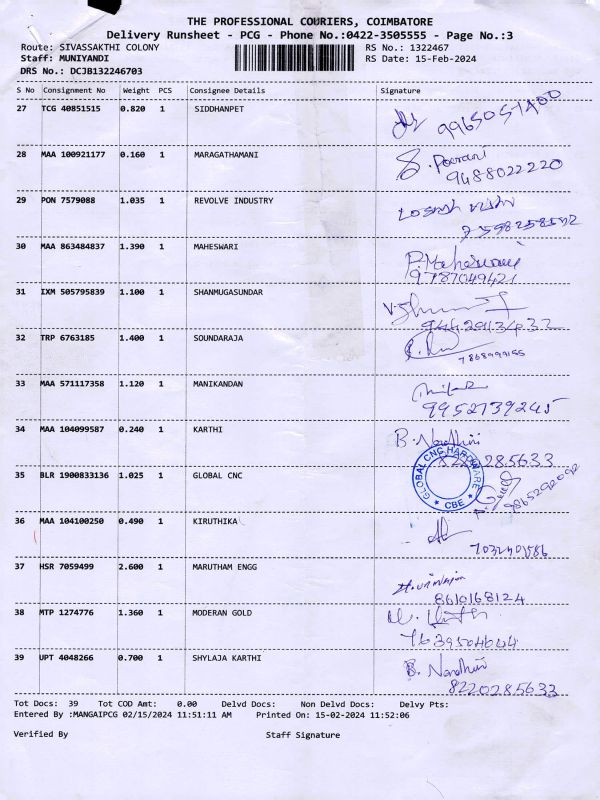 THE PROFESSIONAL COURIERS, COIMBATORE
Delivery Runsheet - PCG - Phone No.:0422-3505555 - Page No.:3
Route: SIVASSAKTHI COLONY RS No.: 1322467
Staff: MUNIYANDI RS Date: 15-Feb-2024
DRS No.: DCJB132246703
S No Consignment No Weight PCS Consignee Details Signature
27 TCG 40851515 0.820 1 SIDDHANPET
28 MAA 100921177 0.160 1 MARAGATHAMANI
9488022220
29 PON 7579088 1.035 1 REVOLVE INDUSTRY
30 MAA 863484837 1.390 1 MAHESWARI P.Maheswari
9787049421
31 IXM 505795839 1.100 1 SHANMUGASUNDAR
32 TRP 6763185 1.400 1 SOUNDARAJA
33 MAA 571117358 1.120 1 MANIKANDAN
9952739245
34 MAA 104099587 0.240 1 KARTHI B. Nandhini
8220285633
35 BLR 1900833136 1.025 1 GLOBAL CNC GLOBAL CNC HARDWARE
★ CBE ★
36 MAA 104100250 0.490 1 KIRUTHIKA
37 HSR 7059499 2.600 1 MARUTHAM ENGG
8610168124
38 MTP 1274776 1.360 1 MODERAN GOLD
7639504644
39 UPT 4048266 0.700 1 SHYLAJA KARTHI B. Nandhini
8220285633
Tot Docs: 39 Tot COD Amt: 0.00 Delvd Docs: Non Delvd Docs: Delvy Pts:
Entered By :MANGAIPCG 02/15/2024 11:51:11 AM Printed On: 15-02-2024 11:52:06
Verified By Staff Signature